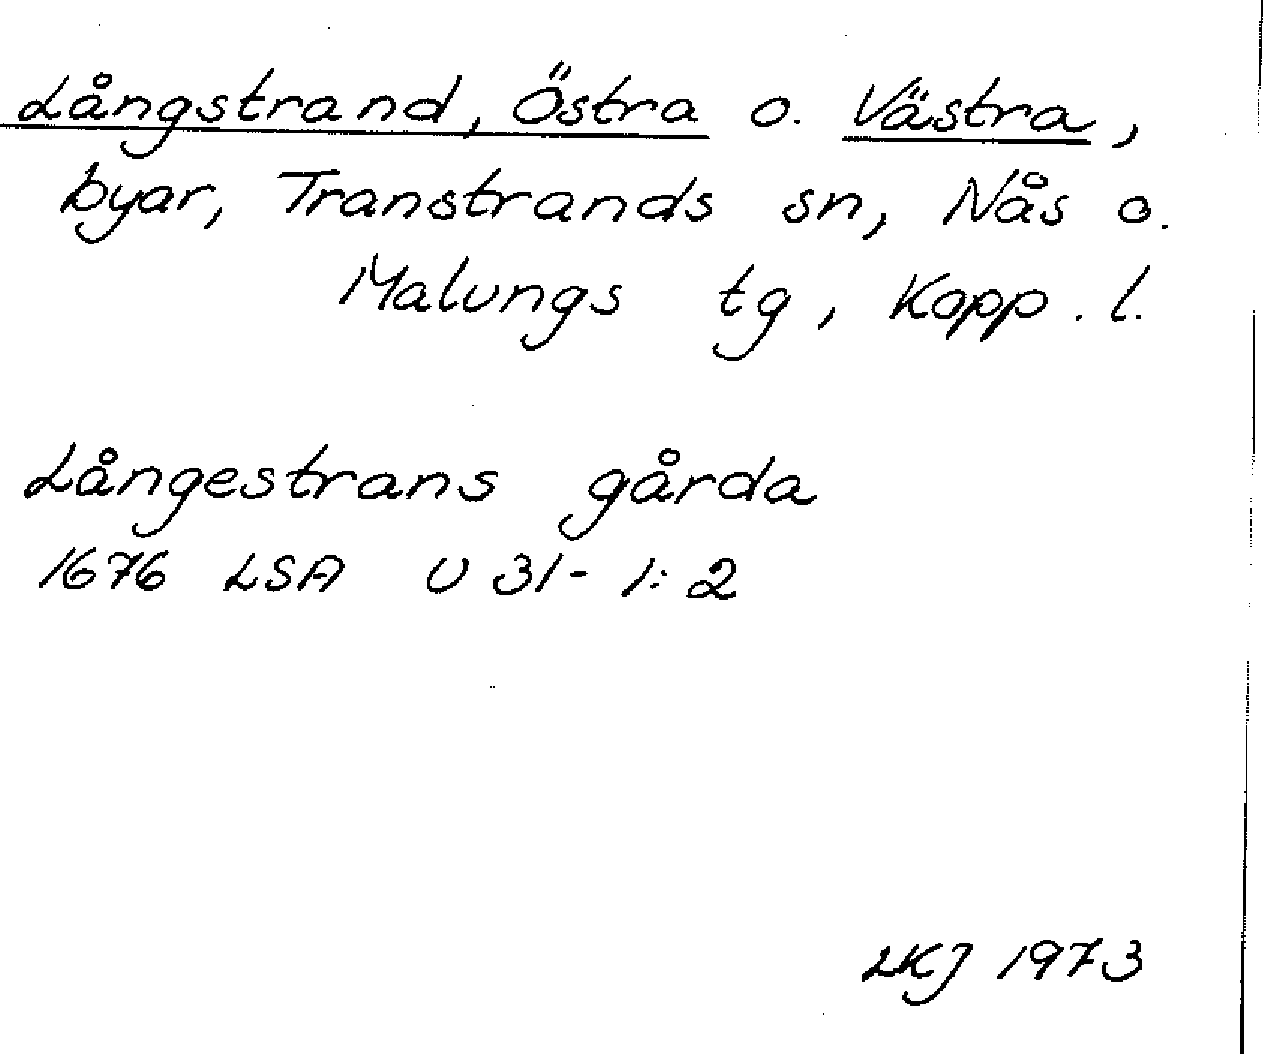 Långstrand, Östra o. Västra,
byar, Transtrands sn, Nås o.
Malungs tg, Kopp. l.
Långestrans gårda
1676 LSA U 31-1:2
LKJ 1973